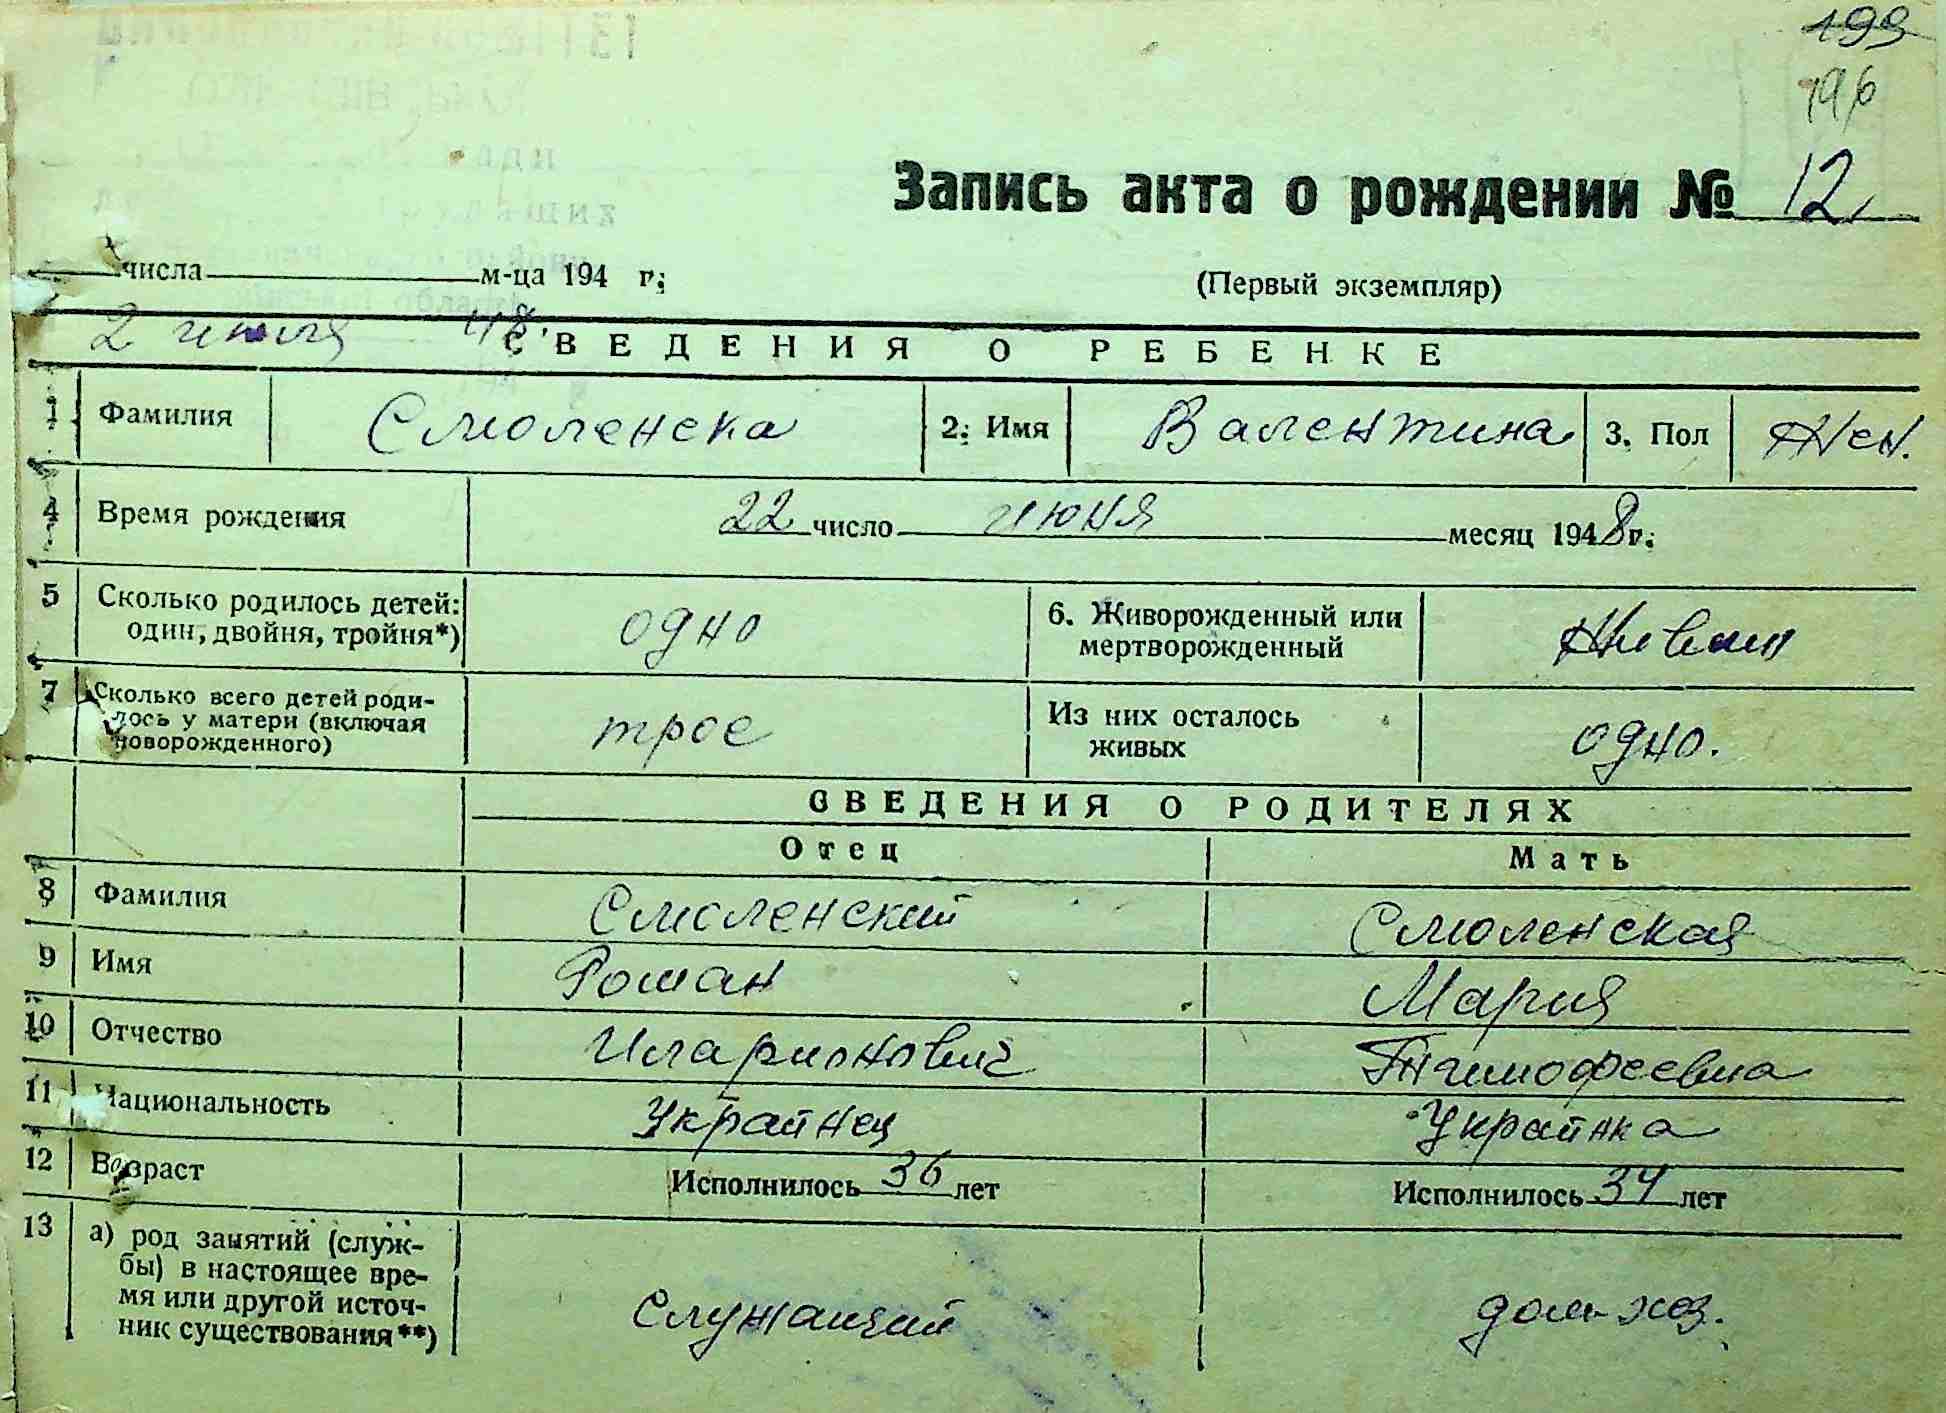 193
196
Запись акта о рождении № 12
числа м-ца 194 г.
(Первый экземпляр)
2 июля 48.
СВЕДЕНИЯ О РЕБЕНКЕ
1 Фамилия Смоленска 2. Имя Валентина 3. Пол Жен.
4 Время рождения 22 число июня месяц 1948 г.
5 Сколько родилось детей: один, двойня, тройня*) одно 6. Живорожденный или мертворожденный
7 Сколько всего детей родилось у матери (включая новорожденного) трое Из них осталось живых одно.
СВЕДЕНИЯ О РОДИТЕЛЯХ
Отец Мать
8 Фамилия Смоленский Смоленская
9 Имя Роман Мария
10 Отчество Иларионович Тимофеевна
11 Национальность Украинец Украинка
12 Возраст Исполнилось 36 лет Исполнилось 34 лет
13 а) род занятий (служ-
бы) в настоящее вре-
мя или другой источ-
ник существования**) Служащий дом-хоз.